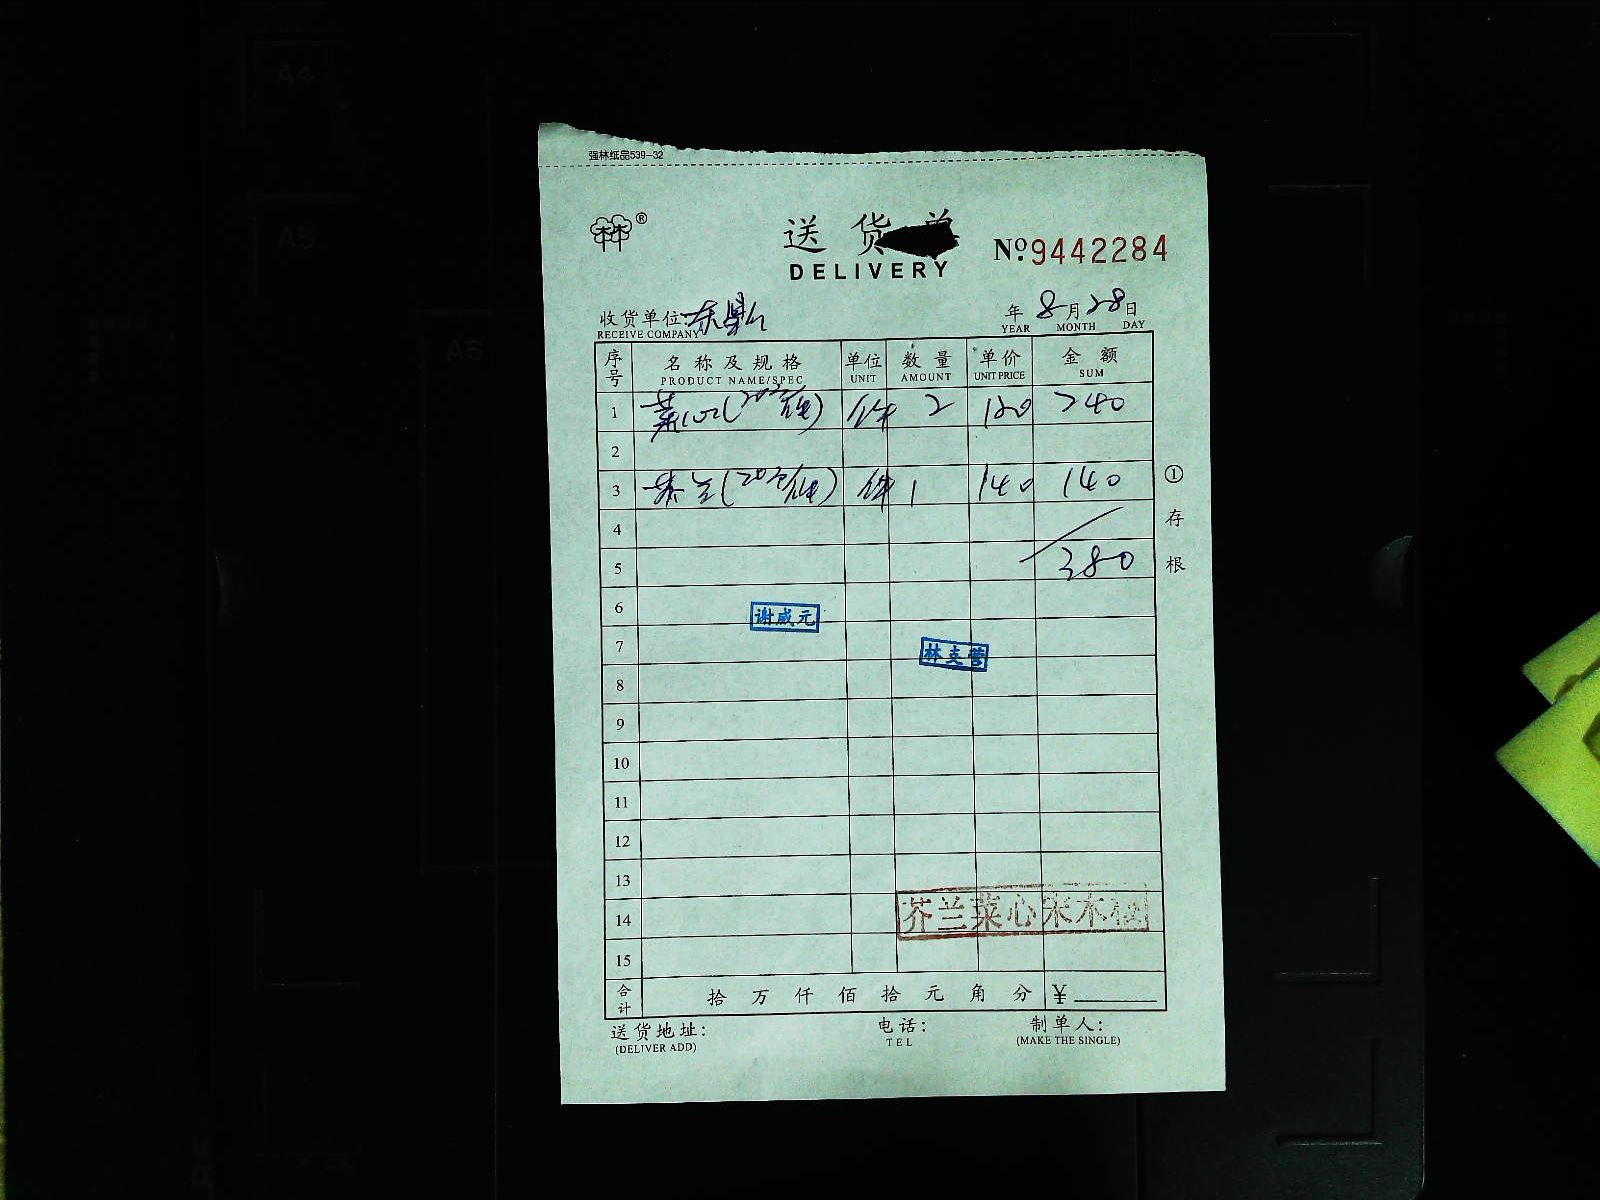 强林纸品539-32
林林® 送货单 №9442284
DELIVERY
收货单位: 年 8月28日
RECEIVE COMPANY YEAR MONTH DAY
序号 名称及规格 单位 数量 单价 金额
PRODUCT NAME/SPEC UNIT AMOUNT UNIT PRICE SUM
1 菜心(20斤/件) 件 2 120 240
2
3 芥兰(20斤/件) 件 1 140 140
4
5 380
6
7
8
9
10
11
12
13
14
15
① 存根
谢威元
芥兰菜心
合计 拾万仟佰拾元角分 ¥
送货地址: 电话: 制单人:
(DELIVER ADD) TEL (MAKE THE SINGLE)
A4
A5
A6